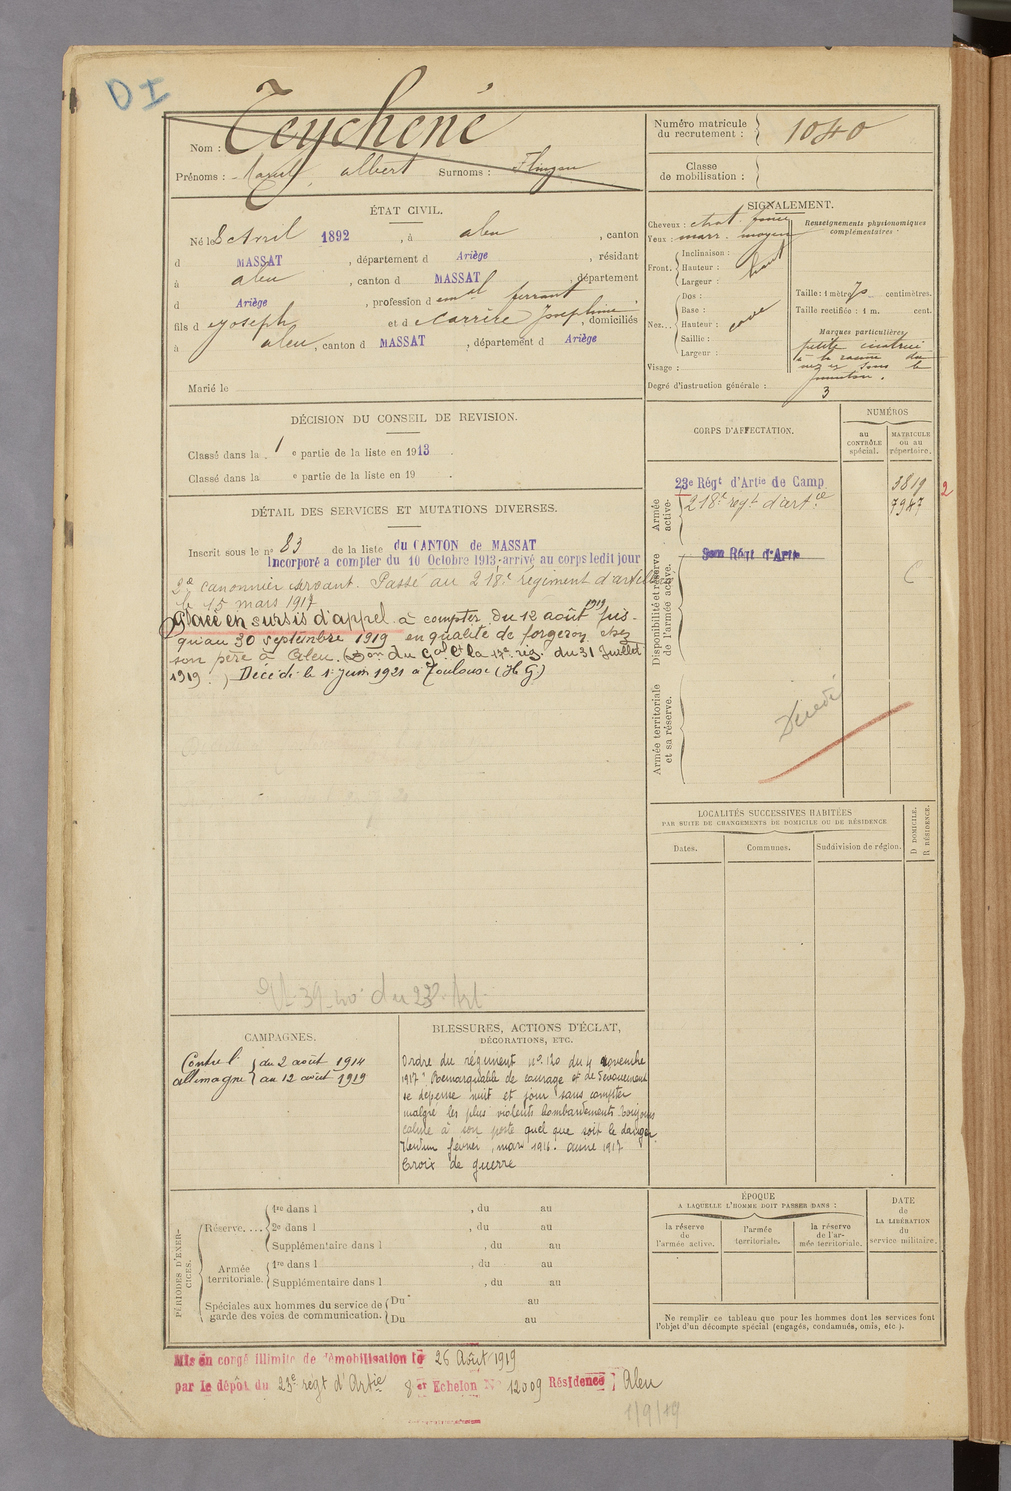 DI
Nom : Teychené
Prénoms : Raoul albert Surnoms :
Numéro matricule du recrutement : 1040
Classe de mobilisation :
ÉTAT CIVIL.
Né le 8 Avril 1892, à aleu, canton
d MASSAT, département d Ariège, résidant
à aleu, canton d MASSAT, département
d Ariège, profession d ferrant
fils d Joseph et d Carrère Joséphine, domiciliés
à aleu, canton d MASSAT, département d Ariège
Marié le
SIGNALEMENT.
Cheveux : chat. foncé
Yeux : marr. moyen
Front. Inclinaison :
Hauteur : haut
Largeur :
Nez... Dos :
Base :
Hauteur : cave
Saillie :
Largeur :
Visage :
Degré d'instruction générale : 3
Renseignements physionomiques complémentaires :
Taille : 1 mètre 70 centimètres.
Taille rectifiée : 1 m. cent.
Marques particulières
petite
à la racine du
nez et sous le
menton.
DÉCISION DU CONSEIL DE REVISION.
Classé dans la 1 e partie de la liste en 1913.
Classé dans la e partie de la liste en 19 .
DÉTAIL DES SERVICES ET MUTATIONS DIVERSES.
Inscrit sous le n° 83 de la liste du CANTON de MASSAT
Incorporé a compter du 10 Octobre 1913-arrivé au corps ledit jour
2e canonnier servant. Passé au 218e régiment d'artillerie
le 15 mars 1917
Placé en sursis d'appel à compter du 12 août 1919 jus-
qu'au 30 septembre 1919 en qualité de forgeron chez
son père à Aleu. (Don du Gal Ct la 17e rég. du 31 Juillet
1919.) Décédé le 1er Juin 1921 à Toulouse (H G)
39 40 du 23e Art
CORPS D'AFFECTATION.
NUMÉROS
au CONTRÔLE spécial.
MATRICULE ou au répertoire.
Armée active.
23e Régt d'Artie de Camp 3819 2
218e regt d'artie 7947
Disponibilité et réserve de l'armée active.
Régt d'Artie
Armée territoriale et sa réserve.
Décédé
LOCALITÉS SUCCESSIVES HABITÉES
PAR SUITE DE CHANGEMENTS DE DOMICILE OU DE RÉSIDENCE
Dates.
Communes.
Subdivision de région.
D DOMICILE.
R RÉSIDENCE.
CAMPAGNES.
Contre l' du 2 août 1914
allemagne au 12 août 1919
BLESSURES, ACTIONS D'ÉCLAT,
DÉCORATIONS, ETC.
Ordre du régiment n° 120 du 4 novembre
1917 "Remarquable de courage et de dévouement
se dépense nuit et jour sans compter
malgré les plus violents bombardements toujours
calme à son poste quel que soit le danger
Verdun février, mars 1916. année 1917
Croix de guerre
PÉRIODES D'EXERCICES.
Réserve.... 1re dans l , du au
2e dans l , du au
Supplémentaire dans l , du au
Armée territoriale. 1re dans l , du au
Supplémentaire dans l , du au
Spéciales aux hommes du service de garde des voies de communication. Du au
Du au
ÉPOQUE
A LAQUELLE L'HOMME DOIT PASSER DANS :
la réserve de l'armée active.
l'armée territoriale.
la réserve de l'armée territoriale.
DATE de LA LIBÉRATION du service militaire.
Ne remplir ce tableau que pour les hommes dont les services font
l'objet d'un décompte spécial (engagés, condamnés, omis, etc ).
Mis en congé illimité de démobilisation le 26 Août 1919
par le dépôt du 23e regt d'Artie 8 er Echelon N° 12009 Résidence : Aleu
1/9/19